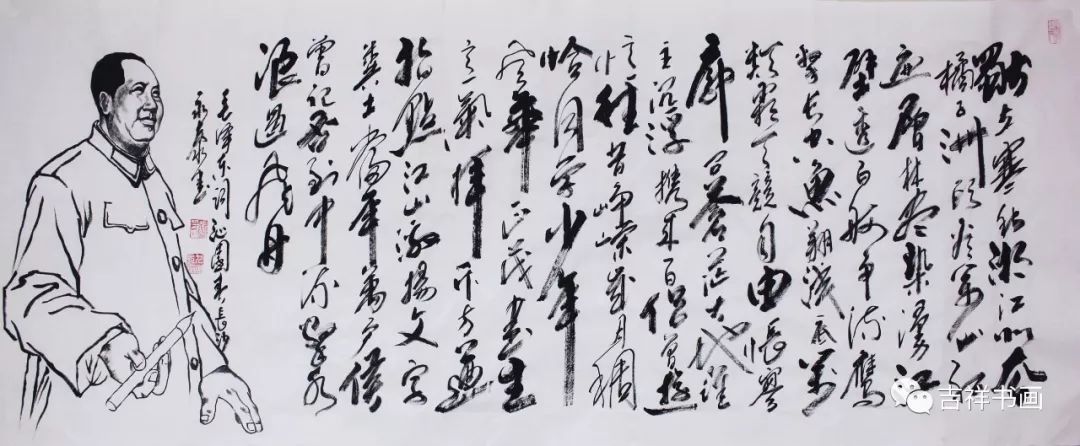 獨立寒秋湘江北去
橘子洲頭看万山红
遍層林尽染漫江
碧透百舸争流鹰
擊长空魚翔浅底万
類霜天竞自由怅寥
廓问苍茫大地谁
主沉浮携来百侣曾遊
忆往昔峥嵘岁月稠
恰同学少年
风華正茂书生
意氣挥斥方遒
指點江山激揚文字
糞土當年萬户侯
曾记否到中流击水
浪遏飛舟
毛澤东词沁園春長沙
永泰书
吉祥书画